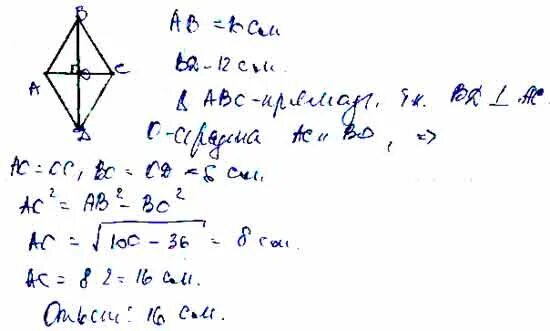 B
A O C
D
AB = 10 см
BD - 12 см.
ABC - прямоуг, т.к. BD ⊥ AC.
O - середина AC и BD, =>
AO = OC, BO = OD = 6 см.
AO² = AB² - BO²
AO = √100 - 36 = 8 см.
AC = 8 2 = 16 см.
Ответ: 16 см.